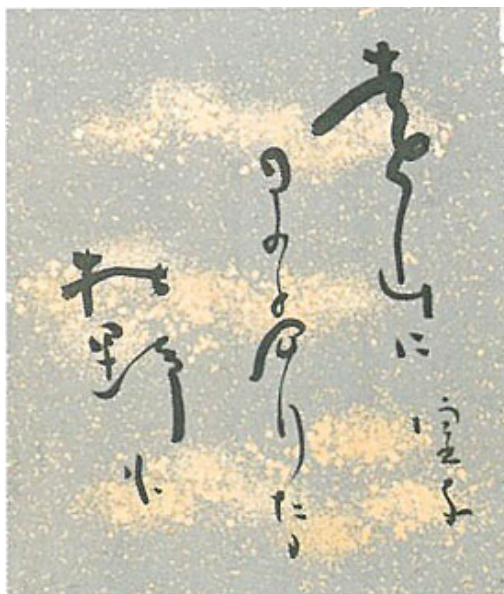 遠山に
日の当りたる
枯野
虚子